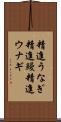 精進うなぎ
精進鰻精進
ウナギ